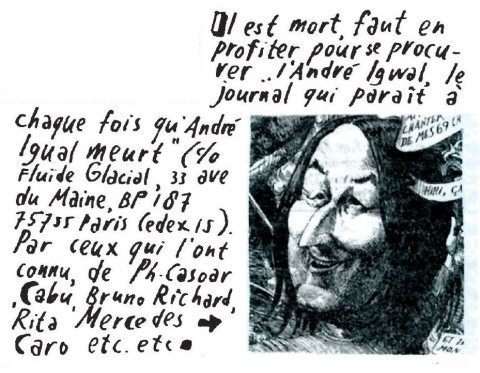 Il est mort, faut en
profiter pour se procu-
rer "l'André Igwal, le
journal qui paraît à
chaque fois qu'André
Igual meurt" (c/o
Fluide Glacial, 33 ave
du Maine, BP 187
75755 Paris Cedex 15).
Par ceux qui l'ont
connu, de Ph. Casoar
, Cabu, Bruno Richard,
Rita Mercedes →
Caro etc. etc.
CHANTER
DE MES 69 CH
HMM, GA
ET
MON